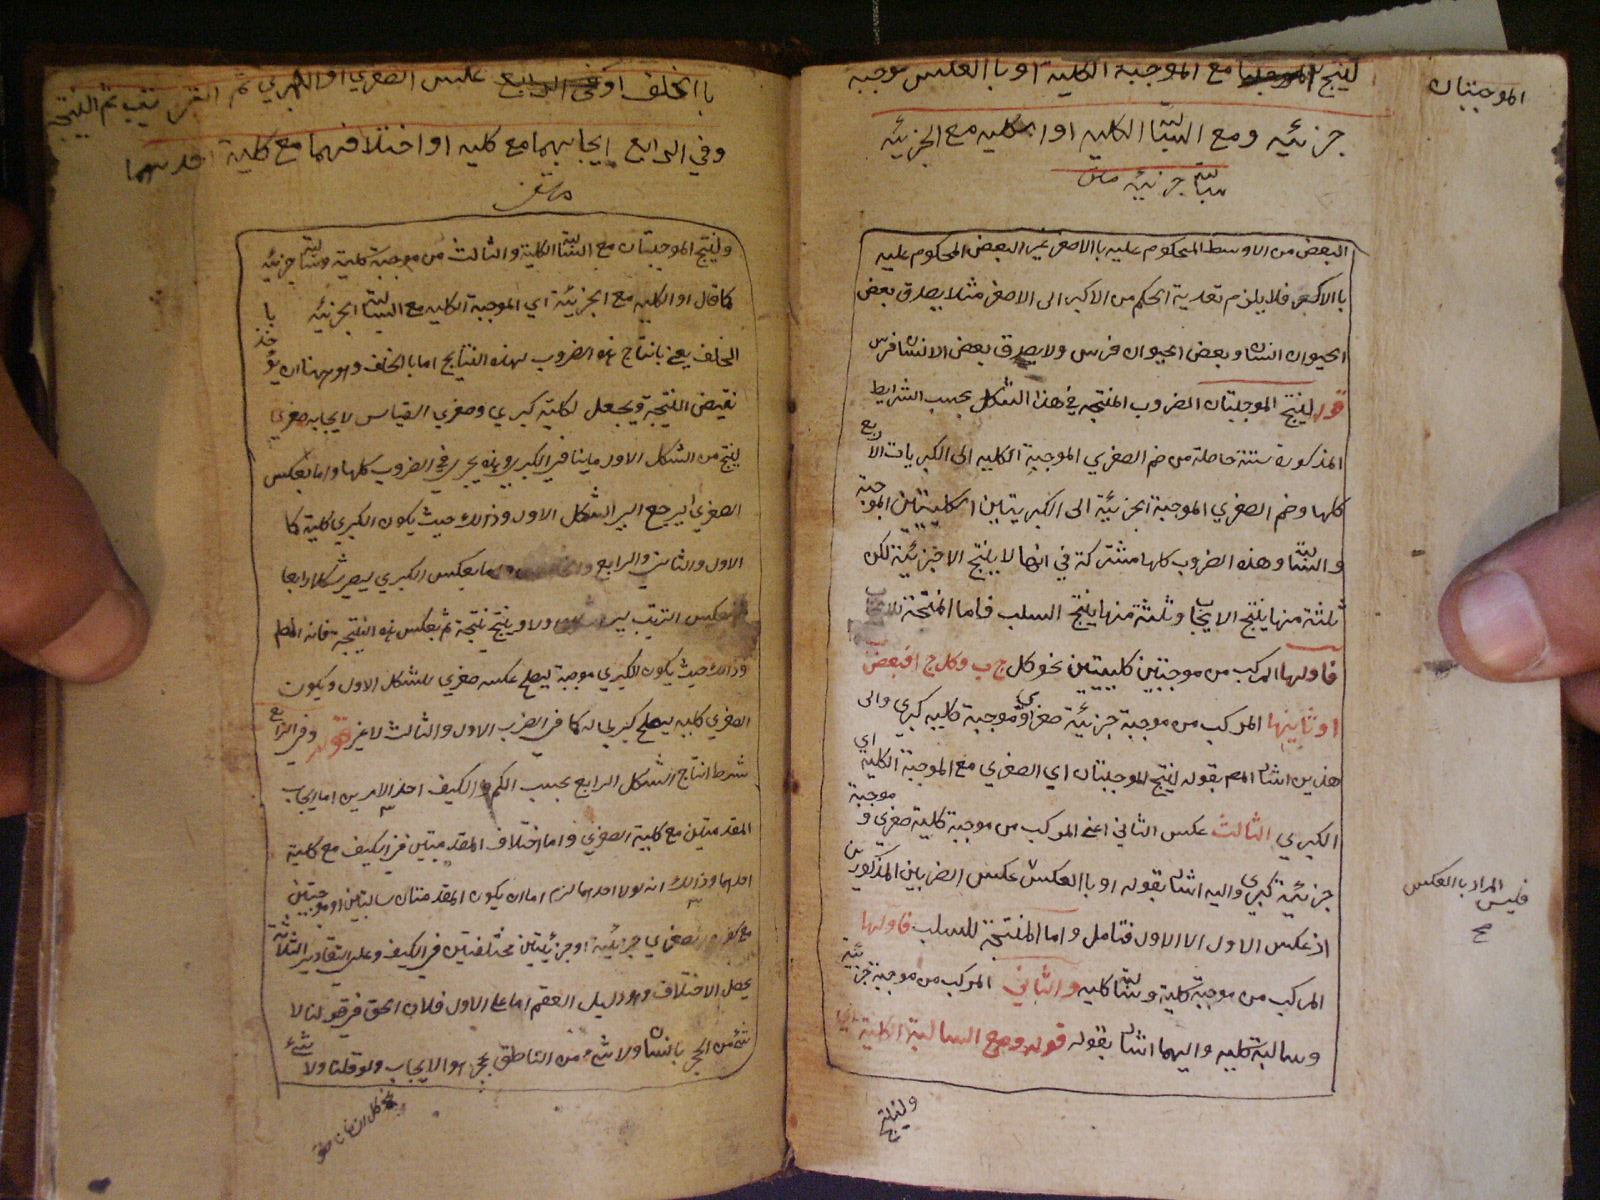 الموجبتان
لينتج الموجبتان مع الموجبة الكلية او باالعكس موجبة
جزئيه ومع السالبة الكليه او الكليه مع الجزئيه
سالبة جزئيه متن
البعض من الاوسط المحكوم عليه باالاصغر غير البعض المحكوم عليه
باالاكبر فلا يلزم تعدية الحكم من الاكبر الى الاصغر مثلا يصدق بعض
الحيوان انسان وبعض الحيوان فرس ولا يصدق بعض الانسان فرس
قوله لينتج الموجبتان الضروب المنتجه في هذا الشكل بحسب الشرايط
المذكورة ستة حاصلة من ضم الصغري الموجبة الكليه الى الكبريات الاربع
كلها وضم الصغري الموجبة الجزئية الى الكبريتين الكليتين الموجبة
والسالبة وهذه الضروب كلها مشتركة في انها لا ينتج الا جزئية لكن
ثلثة منها ينتج الايجاب وثلثة منها ينتج السلب فاما المنتجة للايجاب
فاولها المركب من موجبتين كليتين نحو كل ج ب وكل ج ا فبعض
ب ا وثانيها المركب من موجبة جزئية صغري وموجبة كليه كبري والى
هذين اشار المص بقوله لينتج الموجبتان اي الصغري مع الموجبة الكلية اي
الكبري الثالث عكس الثاني اعني المركب من موجبة كلية صغري وموجبة
جزئية كبري واليه اشار بقوله او باالعكس عكس الضربين المذكورين
فليس المراد باالعكس
اذ عكس الاول الا الاول فتامل واما المنتجة للسلب فاولها
المركب من موجبة كلية وسالبة كليه والثاني المركب من موجبة جزئية
وسالبة كليه واليهما اشار بقوله قوله ومع السالبة الكلية اي
ولينتج
باالخلف او عكس الصغري او الكبري ثم الترتيب ثم النتيجة
وفي الرابع ايجابهما مع كليه او اختلافهما مع كلية احديهما
متن
ولينتج الموجبتان مع السالبة الكلية والثالث من موجبة كلية وسالبة جزئية
كما قال او الكليه مع الجزئية اي الموجبة الكليه مع السالبة الجزئيه با
الخلف يعني بانتاج هذه الضروب لهذه النتايج اما باالخلف وهو ههنا ان يؤخذ
نقيض النتيجة ويجعل لكليته كبري وصغري القياس لايجابه صغري
لينتج من الشكل الاول ما ينافي الكبري وهذه يجري في الضروب كلها واما بعكس
الصغري ليرجع الى الشكل الاول وذالك حيث يكون الكبري كلية كما
الاول والثاني والرابع واما بعكس الكبري ليصير شكلا رابعا
بعكس الترتيب ليصير شكلا اولا وينتج نتيجة ثم بعكس هذه النتيجة فانه المط
وذالك حيث يكون الكبري موجبة ليصلح عكسه صغري للشكل الاول ويكون
الصغري كليه ليصلح كبري له كما في الضرب الاول والثالث لا غير قوله وفي الرابع
شرط انتاج الشكل الرابع بحسب الكم والكيف احد الامرين اما ايجاب
المقدمتين مع كلية الصغري واما اختلاف المقدمتين في الكيف مع كلية
احدهما وذالك انه لولا احدهما لزم اما ان يكون المقدمتان سالبتين او موجبتين
مع كون الصغري جزئية او جزئيتين مختلفتين في الكيف وعلى التقادير الثلثة
يحصل الاختلاف وهو دليل العقم اما على الاول فلان الحق في قولنا لا
شئ من الحجر بانسان ولا شئ من الناطق بحجر هو الايجاب ولو قلنا ولا شئ